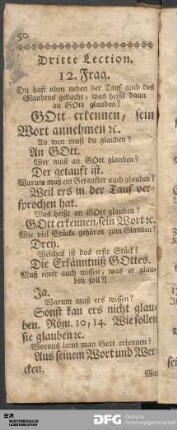 50
Dritte Lection.
12. Frag.
Du hast oben neben der Tauf auch des
Glaubens gedacht, was heist dann
an GOtt glauben?
GOtt erkennen, sein
Wort annehmen ꝛc.
An wen must du glauben?
An GOtt.
Wer muß an GOtt glauben?
Der getauft ist.
Warum muß ein Getaufter auch glauben?
Weil ers in der Tauf ver-
sprochen hat.
Was heißt an GOtt glauben?
GOtt erkennen, sein Wort ꝛc.
Wie viel Stück gehören zum Glauben?
Drey.
Welches ist das erste Stück?
Die Erkänntniß GOttes.
Muß einer auch wissen, was er glau-
ben soll?
Ja.
Warum muß ers wissen?
Sonst kan ers nicht glau-
ben. Röm. 10, 14. Wie sollen
sie glauben ꝛc.
Woraus lernt man Gott erkennen?
Aus seinem Wort und Wer-
cken.
DFG Deutsche
Forschungsgemeinschaft